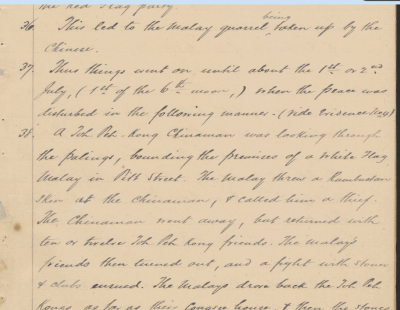 the Red Flag party
36. This led to the Malay quarrel being taken up by the
Chinese.
37. Thus things went on until about the 1st or 2nd
July, (1st of the 6th moon,) when the peace was
disturbed in the following manner. (vide Evidence No 41)
38. A Toh Peh Kong Chinaman was looking through
the palings, bounding the premises of a White Flag
Malay in Street. The Malay threw a Rambutan
skin at the Chinaman, & called him a thief.
The Chinaman went away, but returned with
ten or twelve Toh Peh Kong friends. The Malay's
friends then turned out, and a fight with stones
& clubs ensued. The Malays drove back the Toh Peh
Kongs as far as their Congsee house, & then the stones